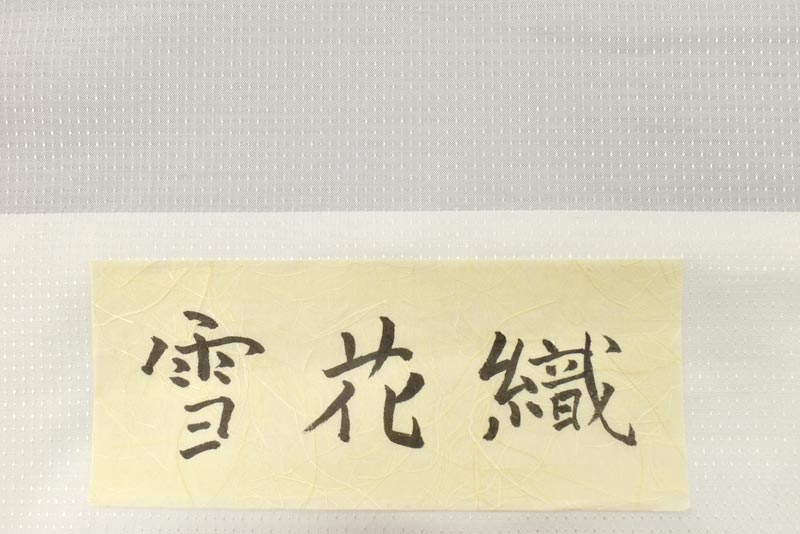 雪花織